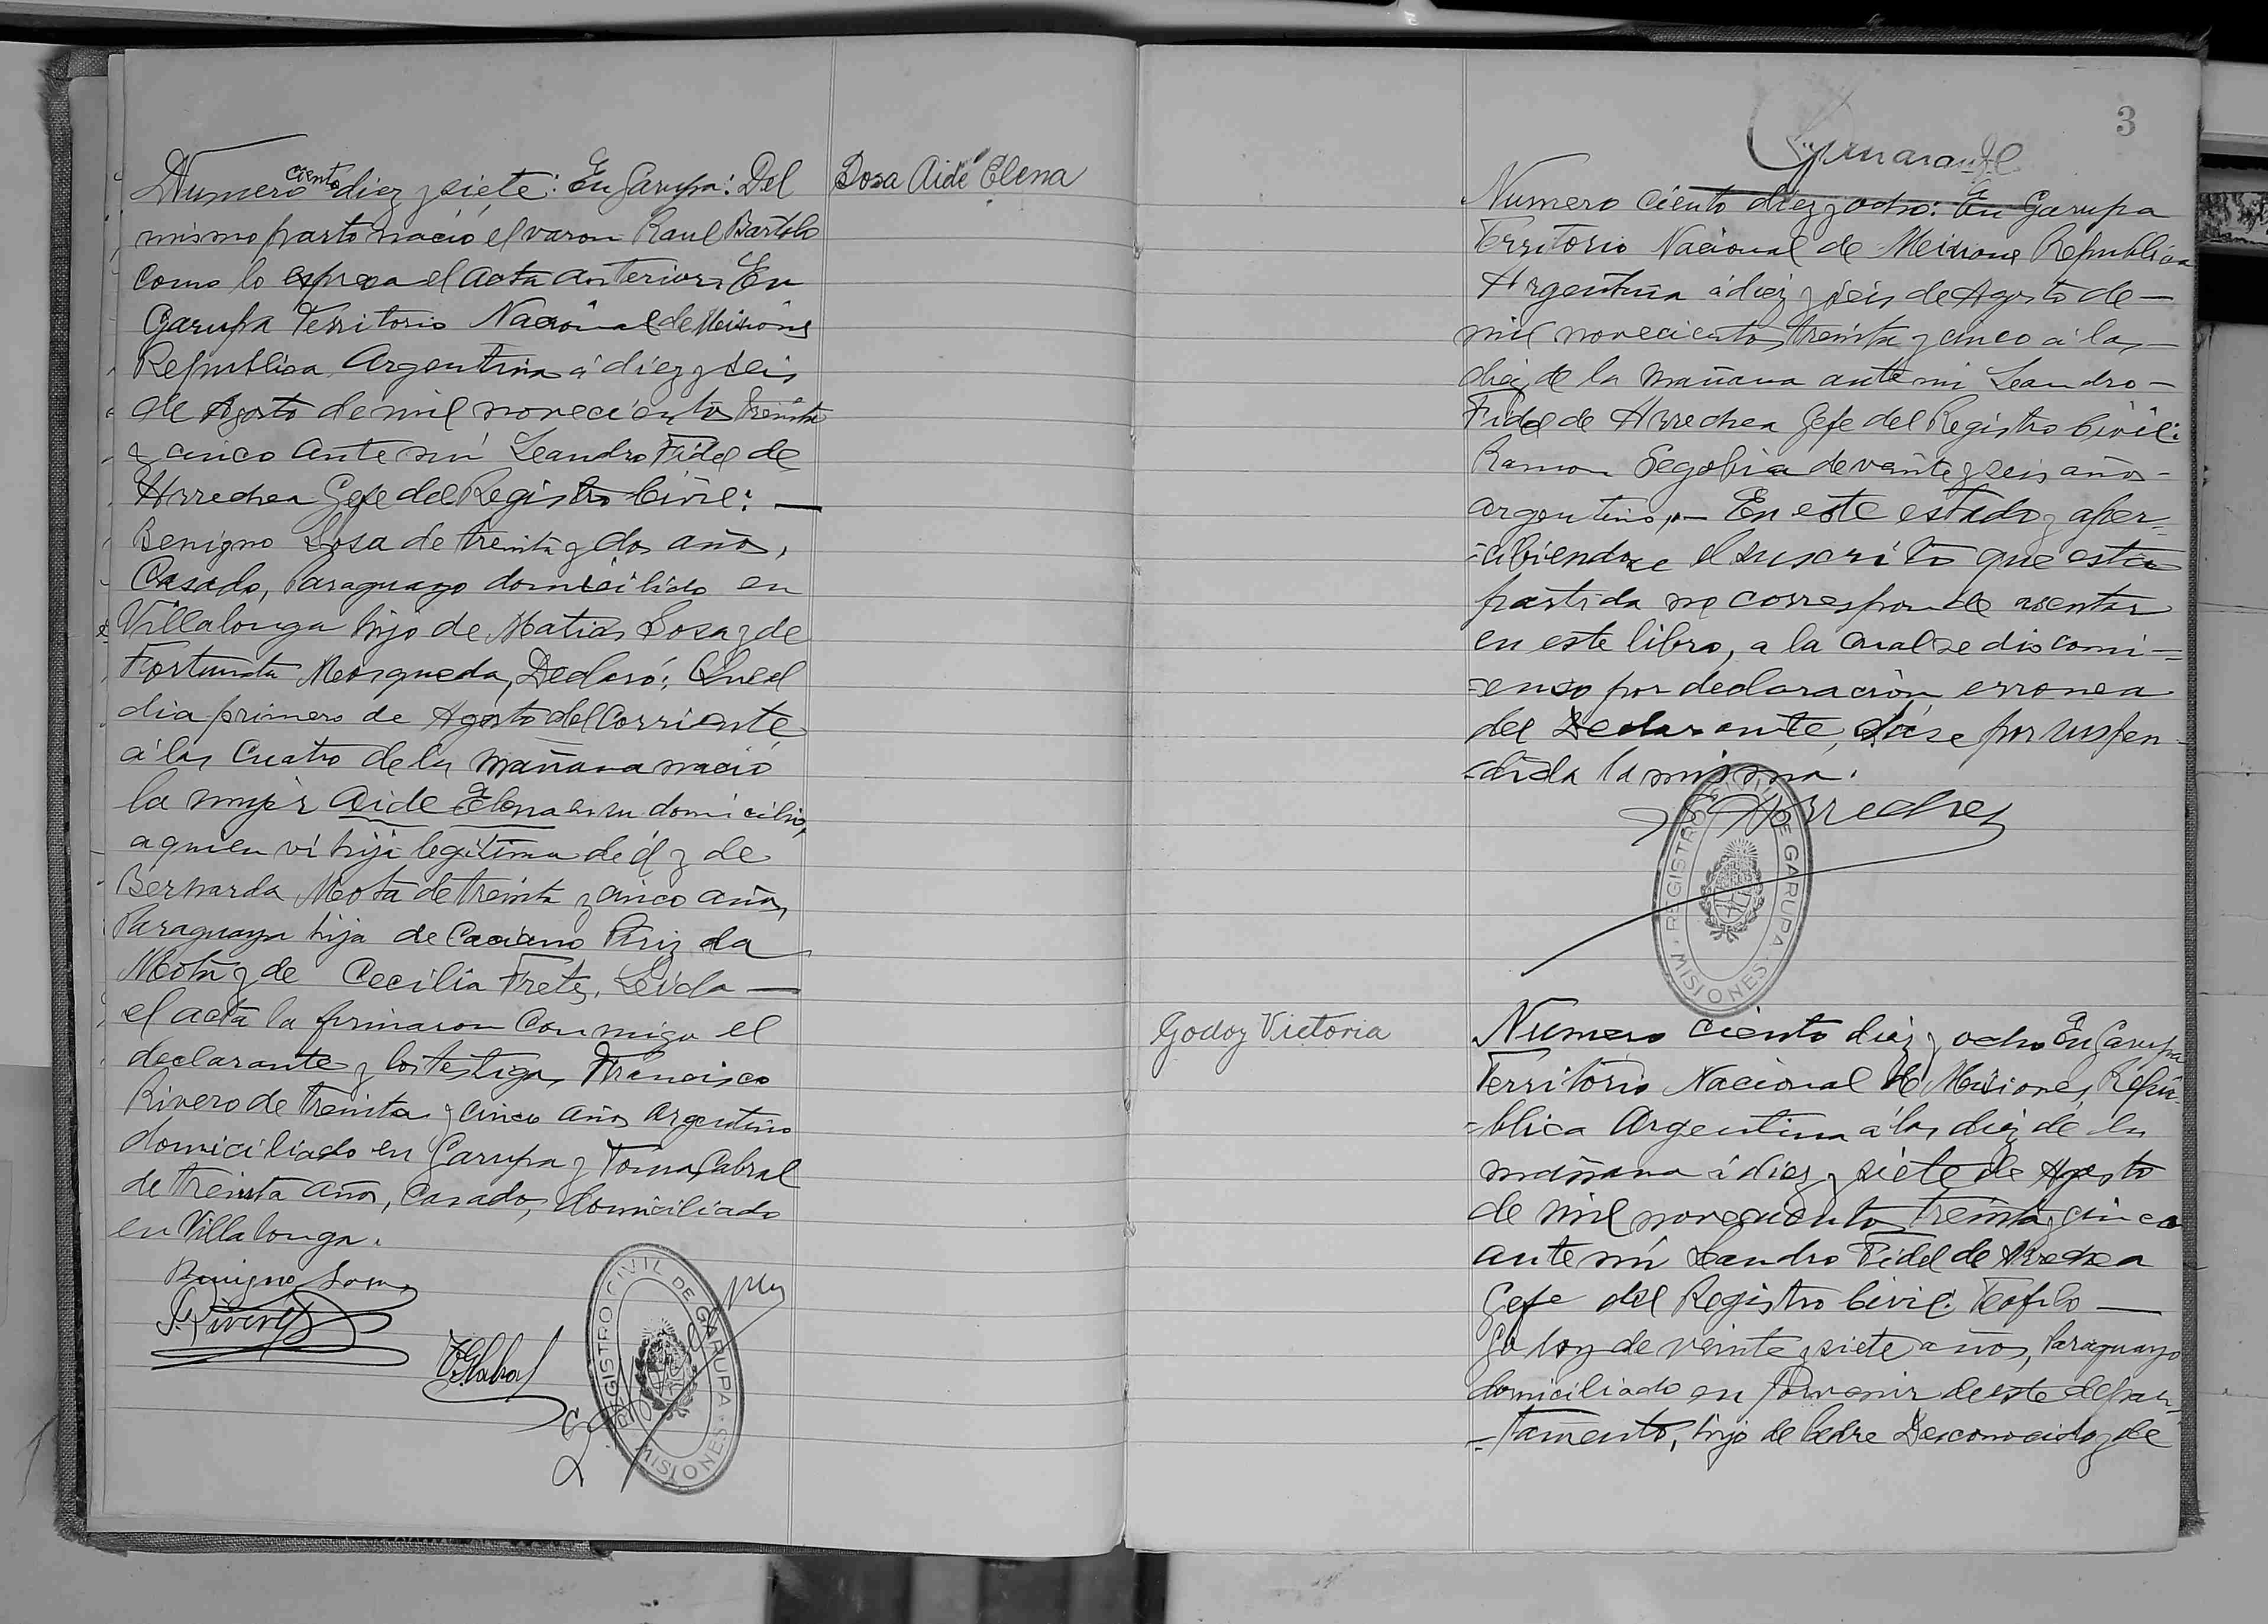 Numero ciento diez y siete: En Garupa: Del
mismo parto nació el varon Raul Bartolo
como lo expresa el acta anterior: En
Garupa Territorio Nacional de Misiones
Republica Argentina á diez y seis
de Agosto de mil novecientos treinta
y cinco ante mi Leandro Fidel de
Arrechea Gefe del Registro Civil: —
Benigno Sosa de treinta y dos años,
Casado, Paraguayo domiciliado en
Villalonga hijo de Matias Sosa y de
Fortunata Mosqueda, Declaró: Que el
dia primero de Agosto del Corriente
á las Cuatro de la mañana nació
la mujer Aide Elena en su domicilio,
a quien vi hija legitima de él y de
Bernarda Mota de treinta y cinco años,
Paraguaya hija de Caciano Piriz da
Mota y de Cecilia Frete, Leida —
el acta la firmaron Conmigo el
declarante y los testigos Francisco
Rivero de treinta y cinco años Argentino
domiciliado en Garupa y Tomas Cabral
de treinta años, Casado, domiciliado
en Villalonga.
Benigno Sosa
F. Rivero
T. Cabral
REGISTRO CIVIL DE GARUPA
MISIONES
Sosa Aidé Elena
3
Numero Ciento diez y ocho: En Garupa
Territorio Nacional de Misiones Republica
Argentina á diez y seis de Agosto de —
mil novecientos treinta y cinco á las —
diez de la mañana ante mi Leandro —
Fidel de Arrechea Gefe del Registro Civil:
Ramon Segobia de veinte y seis años —
argentino, — En este estado y aper-
-cibiendose el suscrito que esta
partida no corresponde asentar
en este libro, a la cual se dio comi=
=enso por declaración erronea
del Declarante, dáse por suspen-
-dida la misma.
Arrechea
REGISTRO CIVIL DE GARUPA
MISIONES
Godoy Victoria
Numero Ciento diez y ocho En Garupa
Territorio Nacional de Misiones, Repú-
-blica Argentina á las diez de la
mañana á diez y siete de Agosto
de mil novecientos treinta y cinco
ante mi Leandro Fidel de Arrechea
Gefe del Registro Civil: Teofilo —
Godoy de veinte y siete años, Paraguayo
domiciliado en Porvenir de este depar-
-tamento, hijo de Padre Desconocido y de